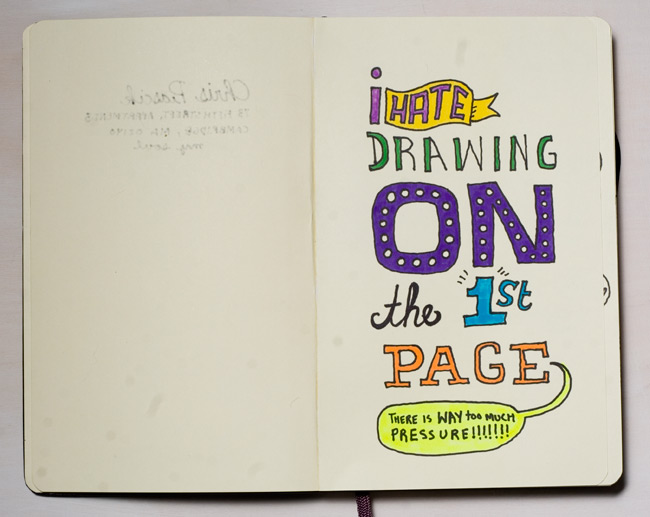 Chris
i HATE
DRAWING
ON
the 1st
PAGE
THERE IS WAY too MUCH
PRESSURE!!!!!!!